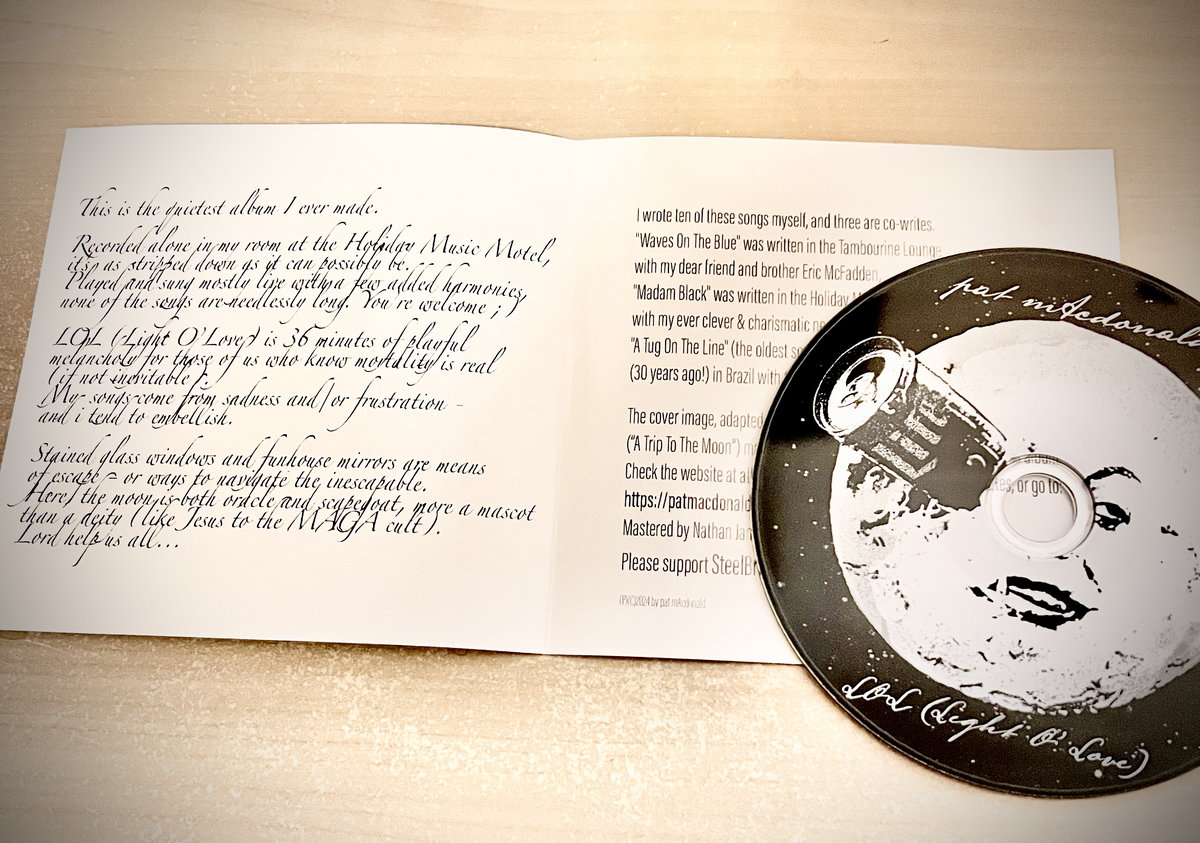 This is the quietest album I ever made.
Recorded alone in my room at the Holiday Music Motel,
it's as stripped down as it can possibly be.
Played and sung mostly live with a few added harmonies,
none of the songs are needlessly long. You're welcome ;)
LOL (Light O' Love) is 36 minutes of playful
melancholy for those of us who know mortality is real
(if not inevitable).
My songs come from sadness and/or frustration -
and i tend to embellish.
Stained glass windows and funhouse mirrors are means
of escape - or ways to navigate the inescapable.
Here, the moon is both oracle and scapegoat, more a mascot
than a deity (like Jesus to the MAGA cult).
Lord help us all...
I wrote ten of these songs myself, and three are co-writes.
"Waves On The Blue" was written in the Tambourine Lounge
with my dear friend and brother Eric McFadden.
"Madam Black" was written in the Holiday
with my ever clever & charismatic
"A Tug On The Line" (the oldest
(30 years ago!) in Brazil with
The cover image, adapted
("A Trip To The Moon")
Check the website at
https://patmacdonald
Mastered by Nathan
Please support SteelB
(P)(C)2024 by pat mAcdonald
pat mAcdonald
LITE
es, or go to:
LOL (Light O' Love)